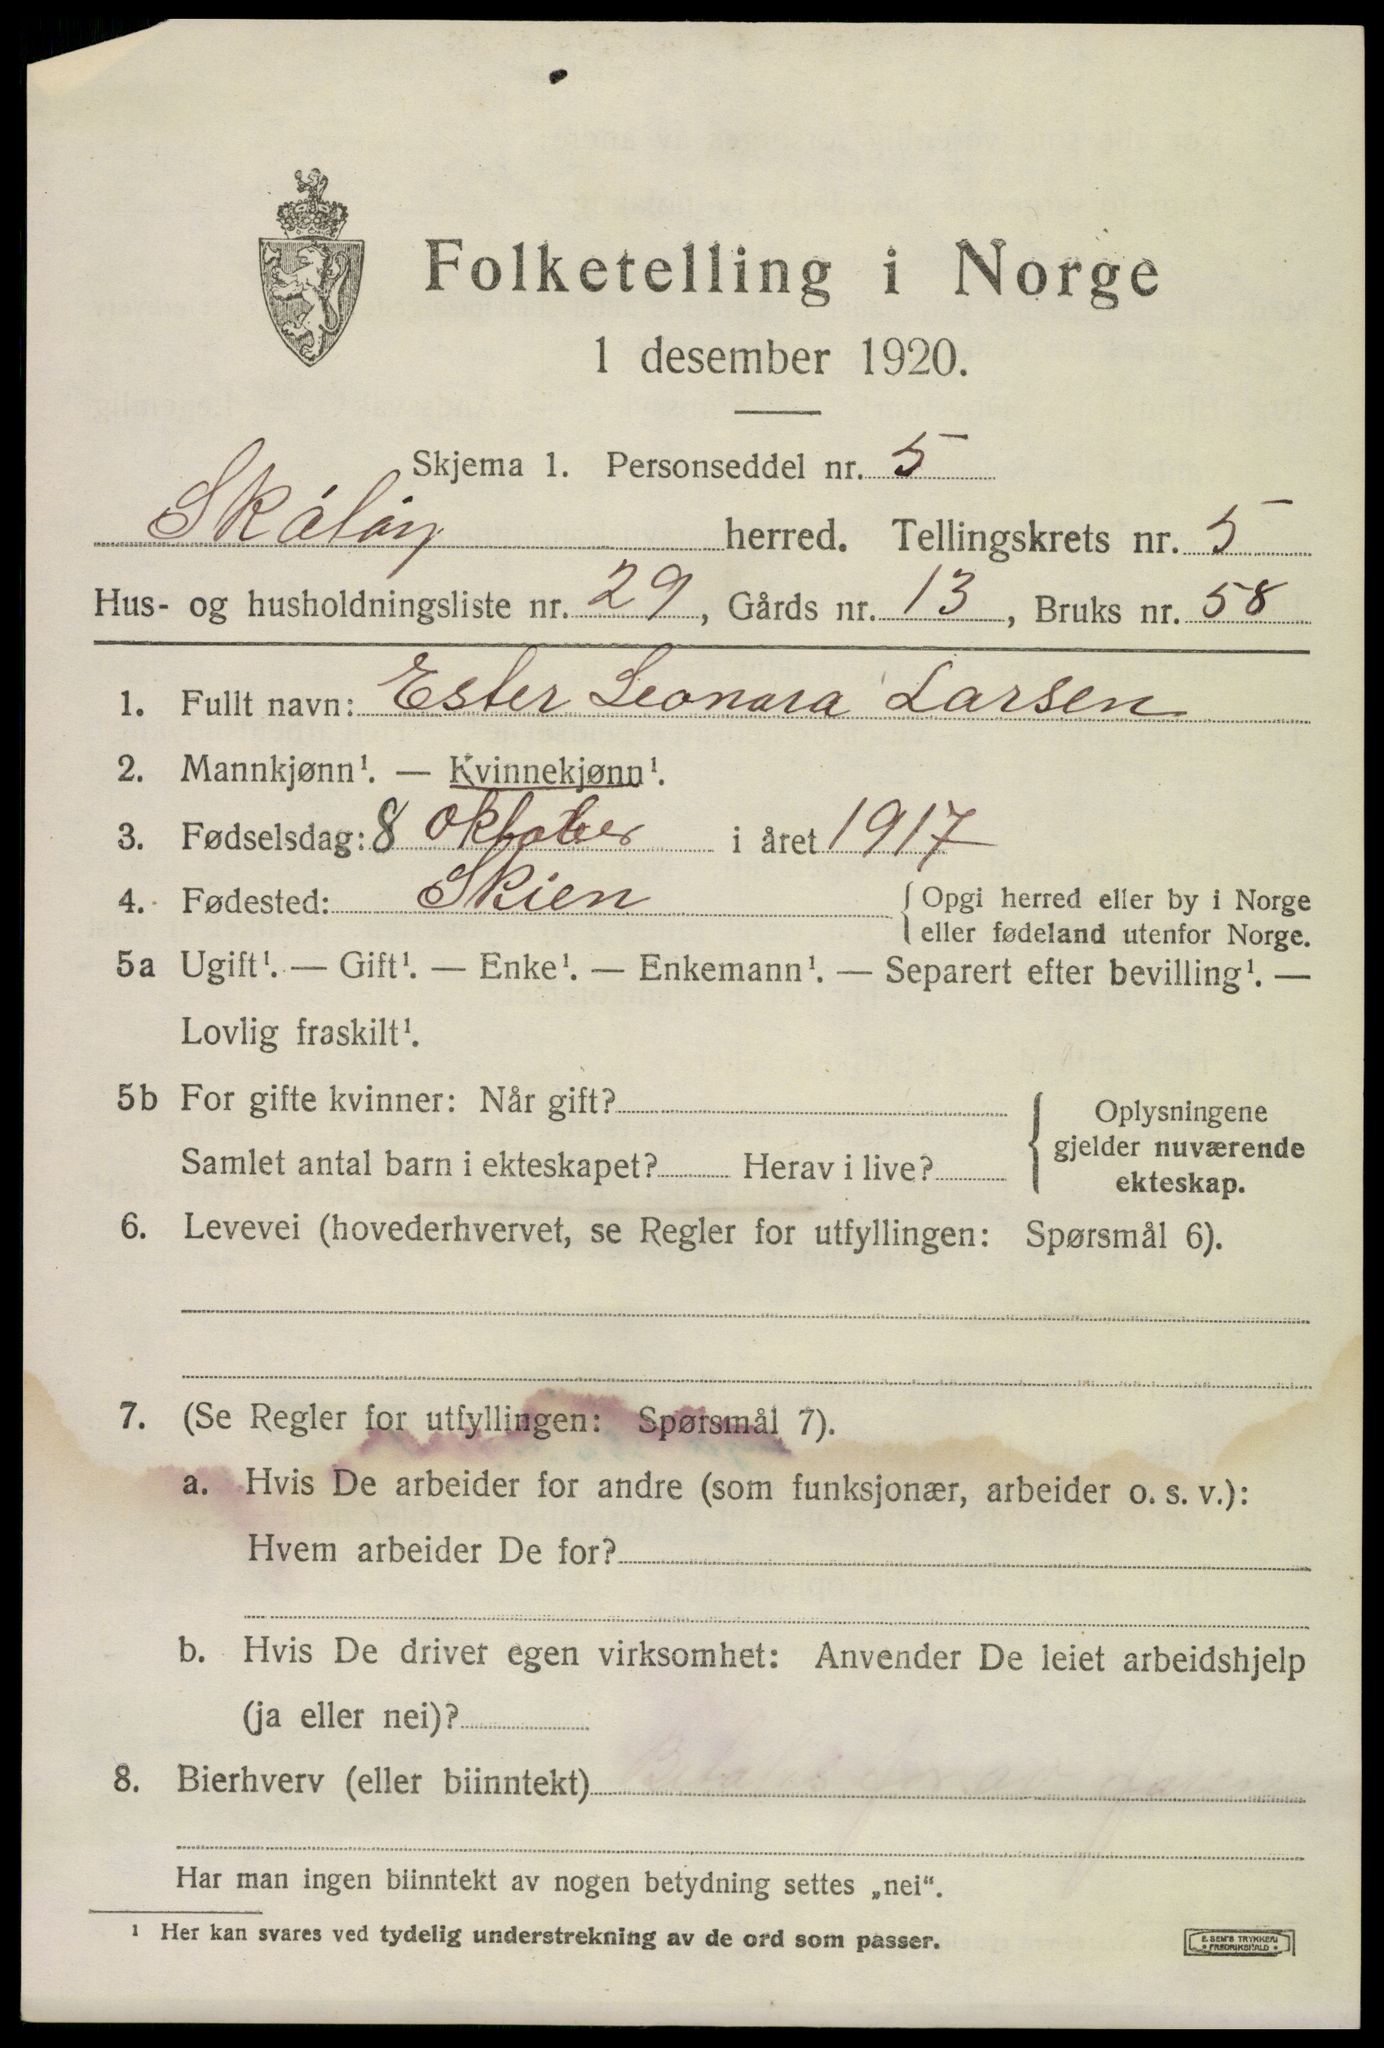 Folketelling i Norge
1 desember 1920.
Skjema 1. Personseddel nr. 5
Skåtøy herred. Tellingskrets nr. 5
Hus- og husholdningsliste nr. 29, Gårds nr. 13, Bruks nr. 58
1. Fullt navn: Ester Leonara Larsen
2. Mannkjønn¹. — Kvinnekjønn¹.
3. Fødselsdag: 8 Oktober i året 1917
4. Fødested: Skien { Opgi herred eller by i Norge
eller fødeland utenfor Norge.
5a Ugift¹. — Gift¹. — Enke¹. — Enkemann¹. — Separert efter bevilling¹. —
Lovlig fraskilt¹.
5b For gifte kvinner: Når gift?
Samlet antal barn i ekteskapet? Herav i live?
{ Oplysningene
gjelder nuværende
ekteskap.
6. Levevei (hovederhvervet, se Regler for utfyllingen: Spørsmål 6).
7. (Se Regler for utfyllingen: Spørsmål 7).
a. Hvis De arbeider for andre (som funksjonær, arbeider o. s. v.):
Hvem arbeider De for?
b. Hvis De driver egen virksomhet: Anvender De leiet arbeidshjelp
(ja eller nei)?
8. Bierhverv (eller biinntekt)
Har man ingen biinntekt av nogen betydning settes „nei“.
¹ Her kan svares ved tydelig understrekning av de ord som passer.
E. SEM'S TRYKKERI
• FREDRIKSHALD •